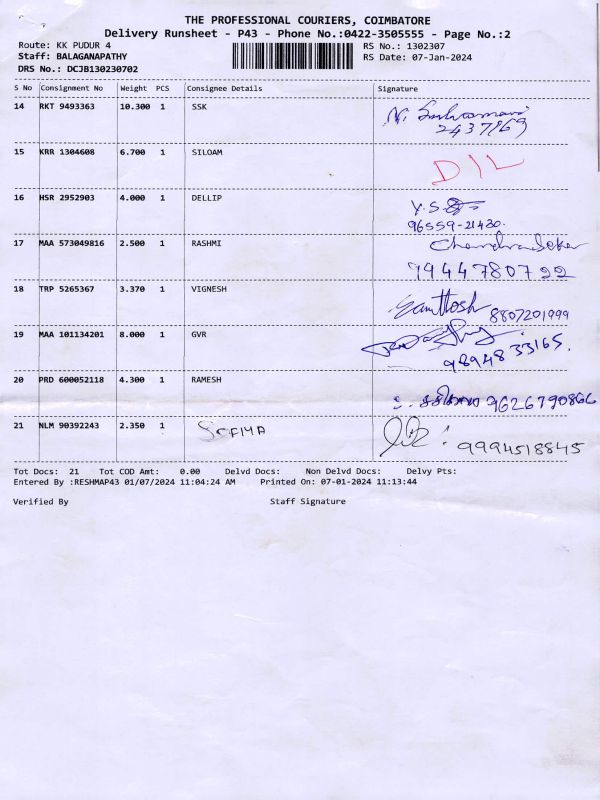 THE PROFESSIONAL COURIERS, COIMBATORE
Delivery Runsheet - P43 - Phone No.:0422-3505555 - Page No.:2
Route: KK PUDUR 4 RS No.: 1302307
Staff: BALAGANAPATHY RS Date: 07-Jan-2024
DRS No.: DCJB130230702
S No Consignment No Weight PCS Consignee Details Signature
14 RKT 9493363 10.300 1 SSK
2437169
15 KRR 1304608 6.700 1 SILOAM D/L
16 HSR 2952903 4.000 1 DELLIP Y.S
96559-21430.
17 MAA 573049816 2.500 1 RASHMI Chandrasekar
9944780722
18 TRP 5265367 3.370 1 VIGNESH Santhosh 8807201999
19 MAA 101134201 8.000 1 GVR
98948 33165.
20 PRD 600052118 4.300 1 RAMESH 9626790866
21 NLM 90392243 2.350 1 SOFIYA 9994518845
Tot Docs: 21 Tot COD Amt: 0.00 Delvd Docs: Non Delvd Docs: Delvy Pts:
Entered By :RESHMAP43 01/07/2024 11:04:24 AM Printed On: 07-01-2024 11:13:44
Verified By Staff Signature